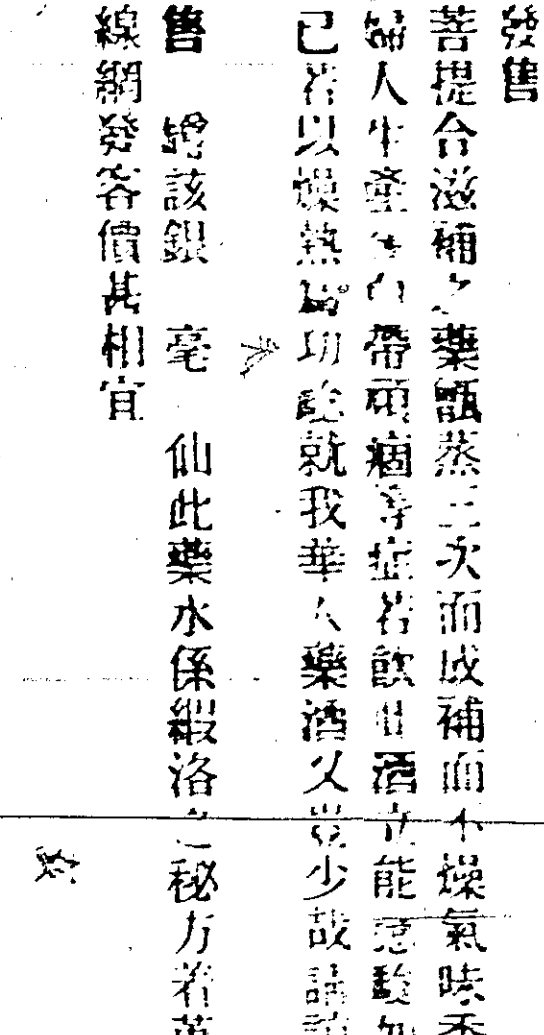 發售
菩提合滋補之藥甑蒸三次而成補而不燥氣味香
婦人生產白帶頭痛等症若飲此酒立能應驗如
已若以燥熱為功效就我華人藥酒又豈少哉請
售 該銀 毫 仙此藥水係緞洛之秘方若
線網發客價甚相宜